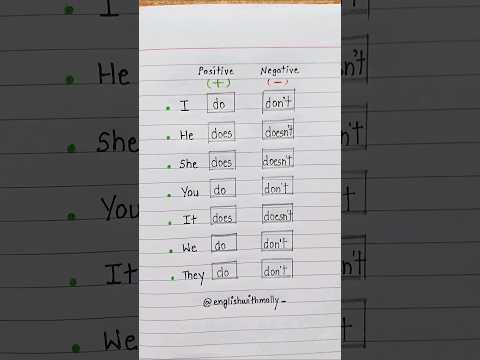 Positive Negative
(+) (-)
I do don't
He does doesn't
She does doesn't
You do don't
It does doesn't
We do don't
They do don't
@englishwithmolly_